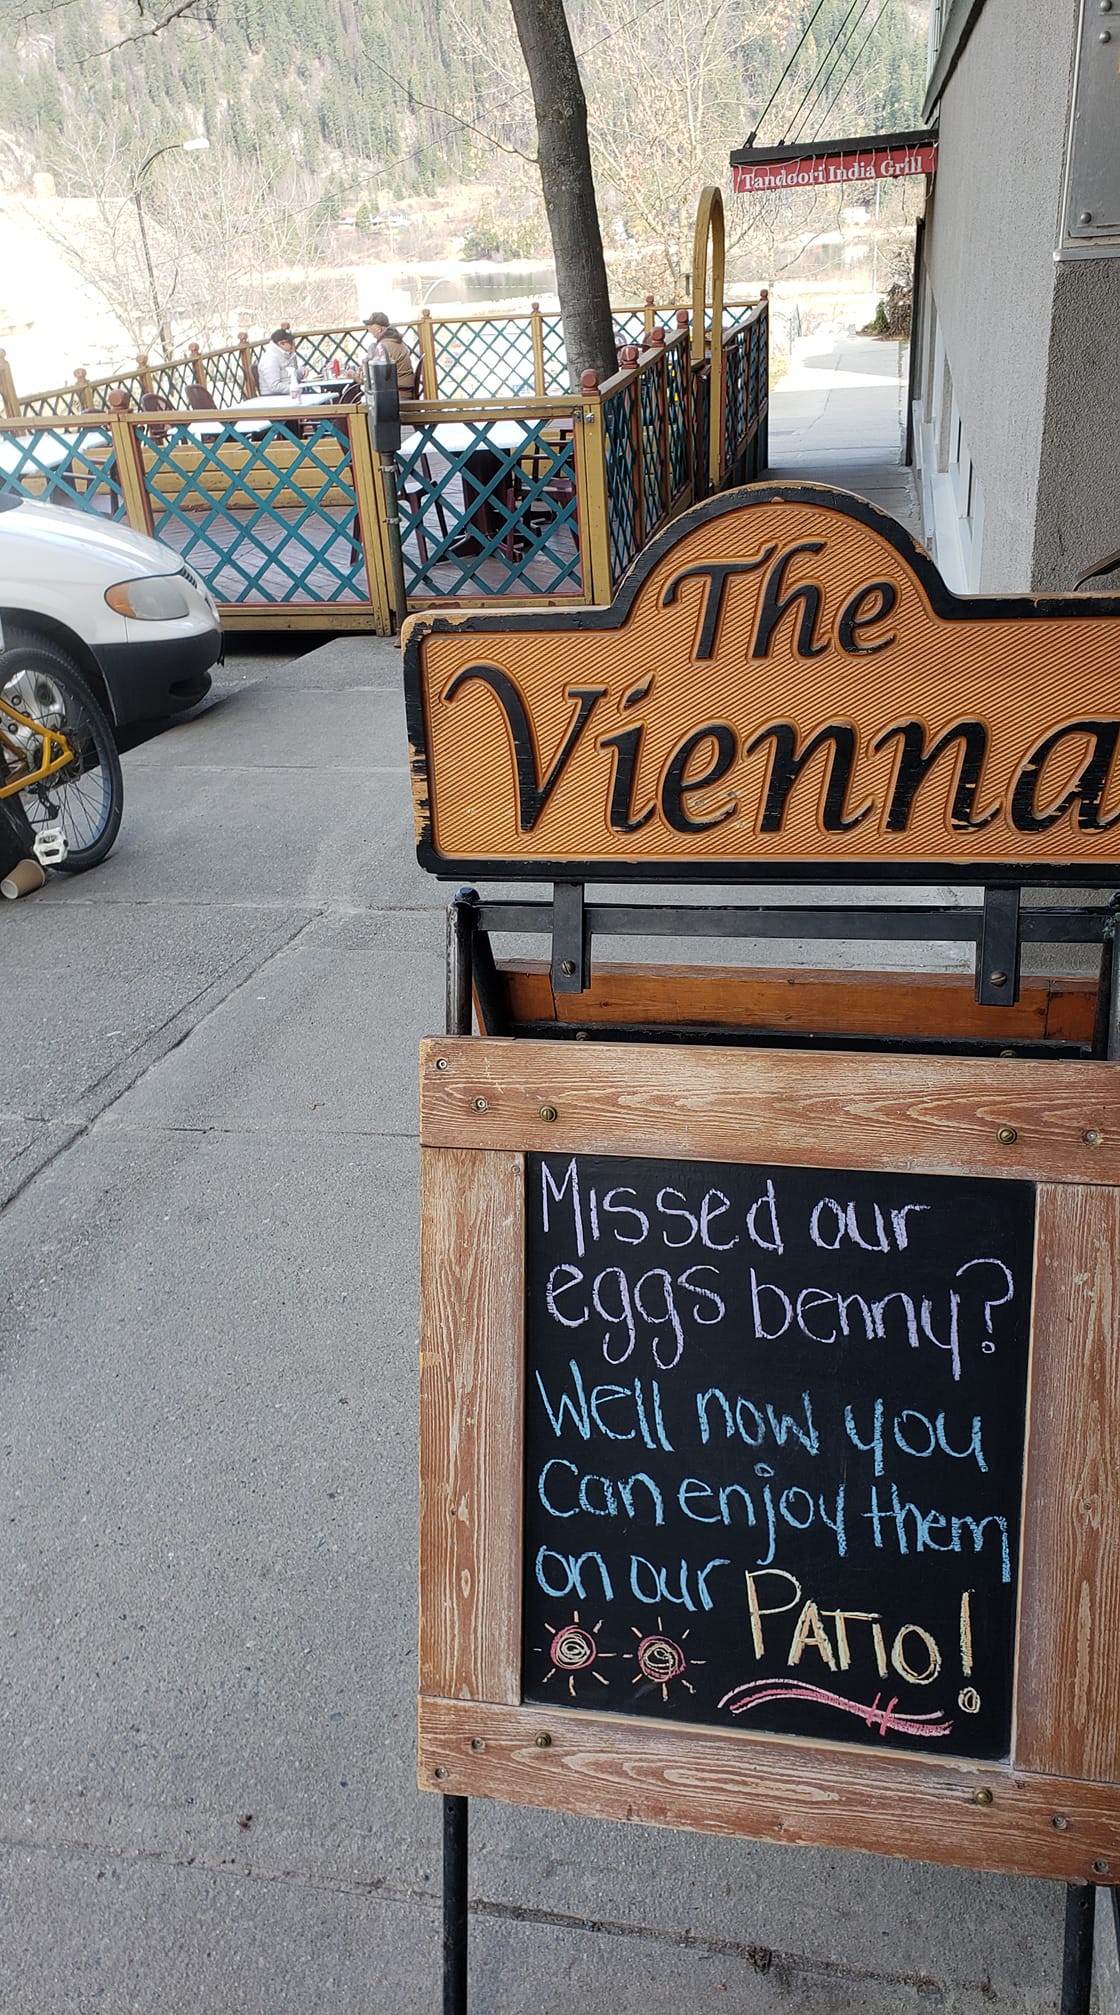 Tandoori India Grill
The
Vienna
Missed our
eggs benny?
Well now you
Can enjoy them
on our PATIO!